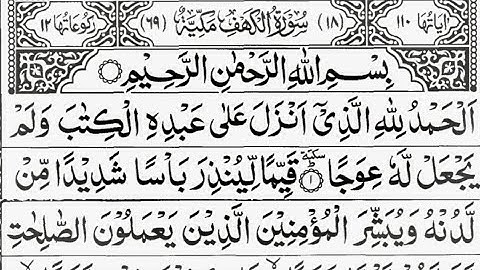 اٰیَاتُهَا ١١٠ (١٨) سُوْرَةُ الْكَهْفِ مَكِّیَّةٌ (٦٩) رُكُوْعَاتُهَا ١٢
بِسْمِ اللهِ الرَّحْمٰنِ الرَّحِیْمِ
اَلْحَمْدُ لِلّٰهِ الَّذِیْۤ اَنْزَلَ عَلٰی عَبْدِهِ الْكِتٰبَ وَلَمْ
یَجْعَلْ لَّهٗ عِوَجًا سكتة قَیِّمًا لِّیُنْذِرَ بَاْسًا شَدِیْدًا مِّنْ
لَّدُنْهُ وَیُبَشِّرَ الْمُؤْمِنِیْنَ الَّذِیْنَ یَعْمَلُوْنَ الصّٰلِحٰتِ